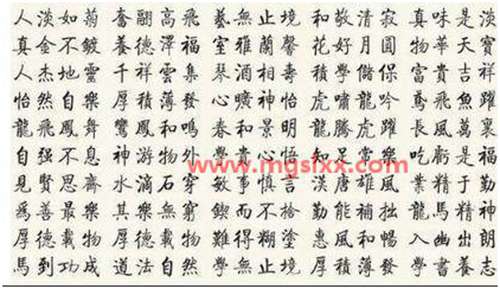 人淡如菊 奮翮高飛 藝無止境 和敬清寂 真味是淡
真金不鍍 養德澤福 室雅蘭馨 花好月圓 物華天寶
人杰地靈 千祥雲集 琴 相壽 積學儲 富貴吉祥
怡然自樂 厚積薄發 曠神怡 虎嘯龍吟 鳶飛魚躍
龍飛鳳舞 鸞鳳和鳴 春和景明 龍騰虎躍 長風萬
自强不息 神游物外 學貴心悟 知足常樂 吃虧是福
見賢思齋 水滴石穿 敏事慎言 漢唐雄風 業精于勤
為善最樂 其樂無窮 鍥而不捨 勤能補拙 龍馬精神
厚德載物 厚德載物 難得糊塗 惠風和暢 入幽出朗
馬到功成 道法自然 學無止境 厚積薄發 學書養志
www.mgslxx.com